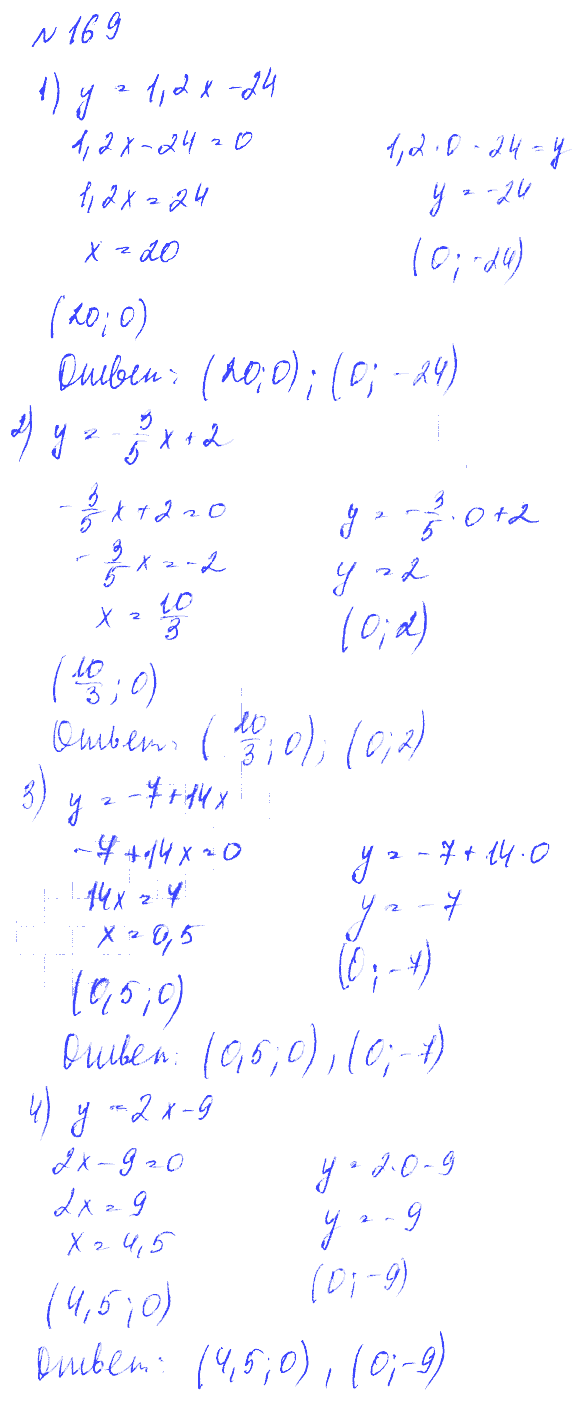 № 169
1) y = 1,2x - 24
1,2x - 24 = 0
1,2x = 24
x = 20
(20; 0)
1,2 · 0 - 24 = y
y = -24
(0; -24)
Ответ: (20; 0); (0; -24)
2) y = -3/5 x + 2
-3/5 x + 2 = 0
-3/5 x = -2
x = 10/3
(10/3; 0)
y = -3/5 · 0 + 2
y = 2
(0; 2)
Ответ: (10/3; 0); (0; 2)
3) y = -7 + 14x
-7 + 14x = 0
14x = 7
x = 0,5
(0,5; 0)
y = -7 + 14 · 0
y = -7
(0; -7)
Ответ: (0,5; 0), (0; -7)
4) y = 2x - 9
2x - 9 = 0
2x = 9
x = 4,5
(4,5; 0)
y = 2 · 0 - 9
y = -9
(0; -9)
Ответ: (4,5; 0), (0; -9)